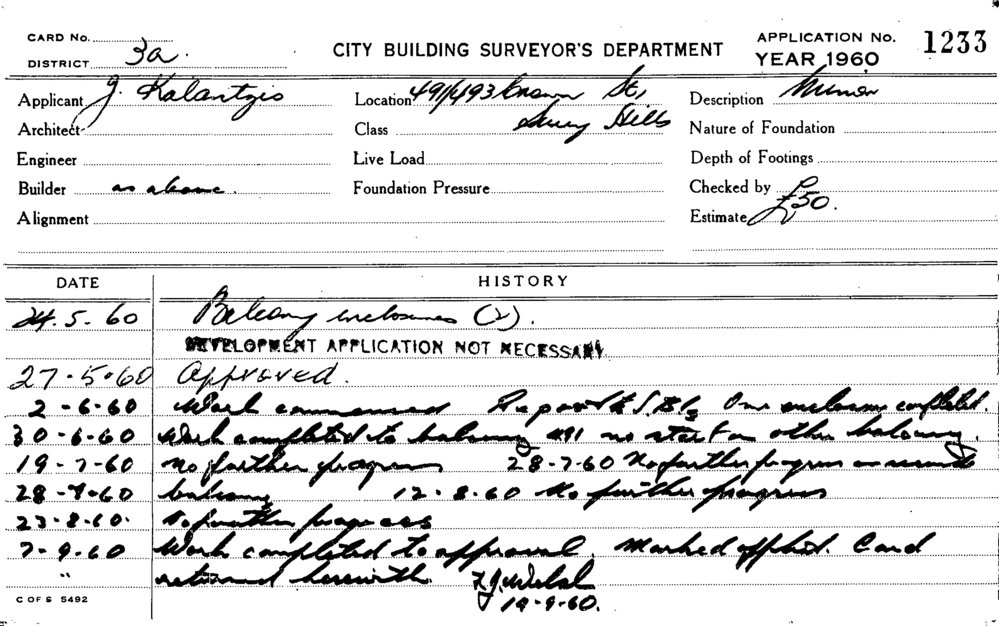 CARD No.
DISTRICT 3a.
CITY BUILDING SURVEYOR'S DEPARTMENT
APPLICATION No. 1233
YEAR 1960
Applicant J. Kalantzis
Location 491/493 Crown St,
Description Minor
Architect
Class Surry Hills
Nature of Foundation
Engineer
Live Load
Depth of Footings
Builder as above.
Foundation Pressure
Checked by
Alignment
Estimate £50.
DATE HISTORY
24.5.60 Balcony enclosures (2).
DEVELOPMENT APPLICATION NOT NECESSARY
27.5.60 Approved.
2-6-60 Work commenced One enclosure completed.
30-6-60 Work completed to balcony 491 no start on other balcony.
19-7-60 No further progress 28-7-60 No further progress on second
28-7-60 balcony 12-8-60 No further progress
23-8-60. No further progress
7-9-60 Work completed to approval. Marked off plan. Card
" returned herewith
19-9-60.
C OF S 5492